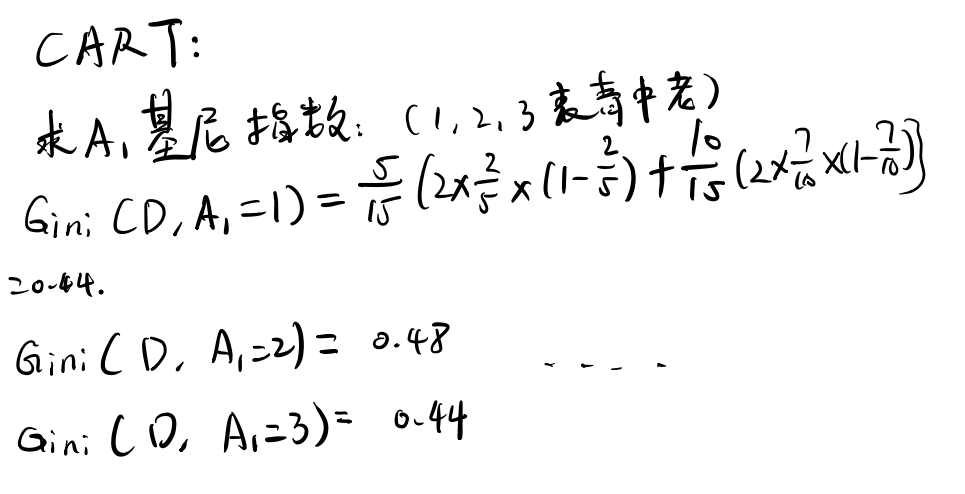 CART:
求A₁基尼指数: (1,2,3表青中老)
Gini (D, A₁=1) = 5/15 (2×2/5×(1-2/5)) + 10/15 (2×7/10×(1-7/10))
=0.44.
Gini (D, A₁=2) = 0.48 - - - -
Gini (D, A₁=3) = 0.44